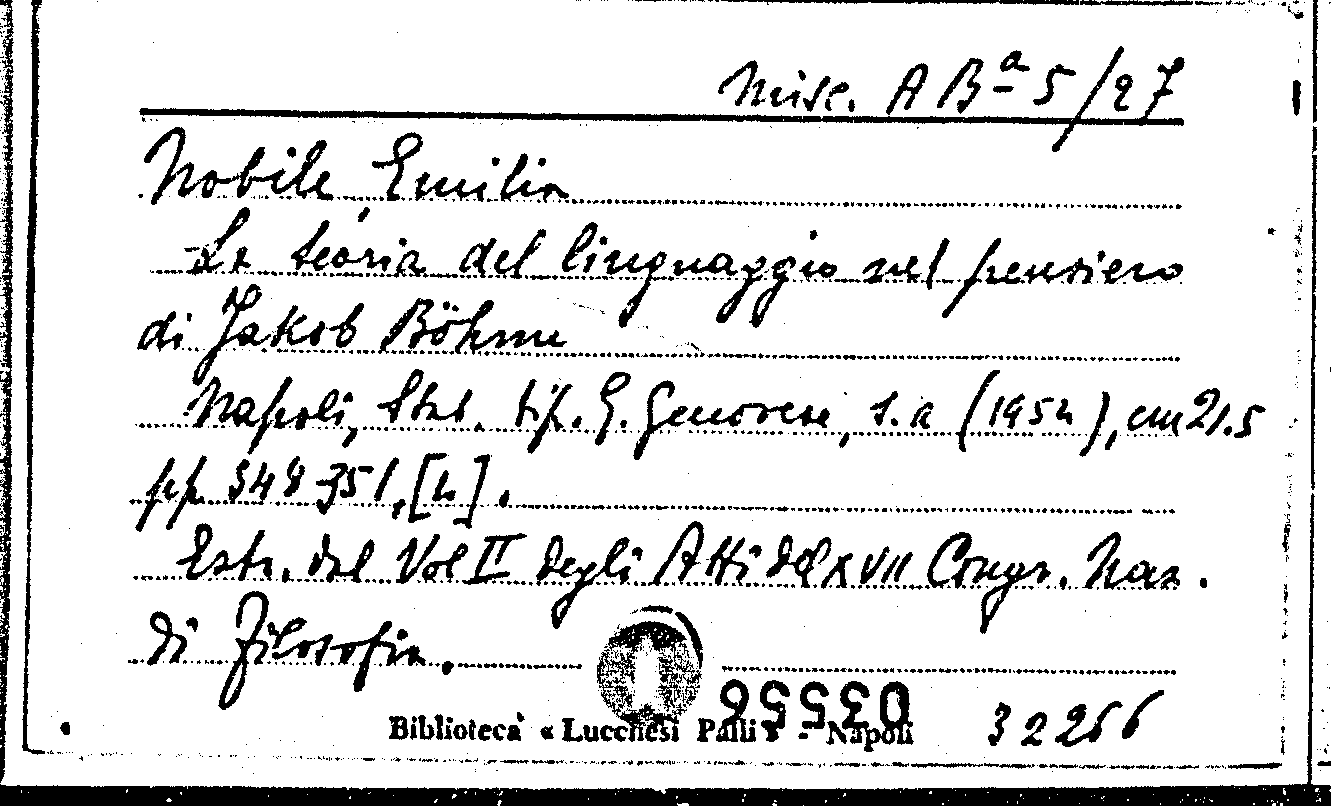 Misc. A Bª 5/27
Nobile, Emilia
La teoria del linguaggio nel pensiero
di Jakob Böhme
Napoli, Stab. tip. G. Genovese, s.a (1954), cm 21.5
pp 348-351, [1].
Estr. dal Vol II degli Atti del XVII Congr. Naz.
di Filosofia.
03556
Biblioteca « Lucchesi Palli » - Napoli 32256